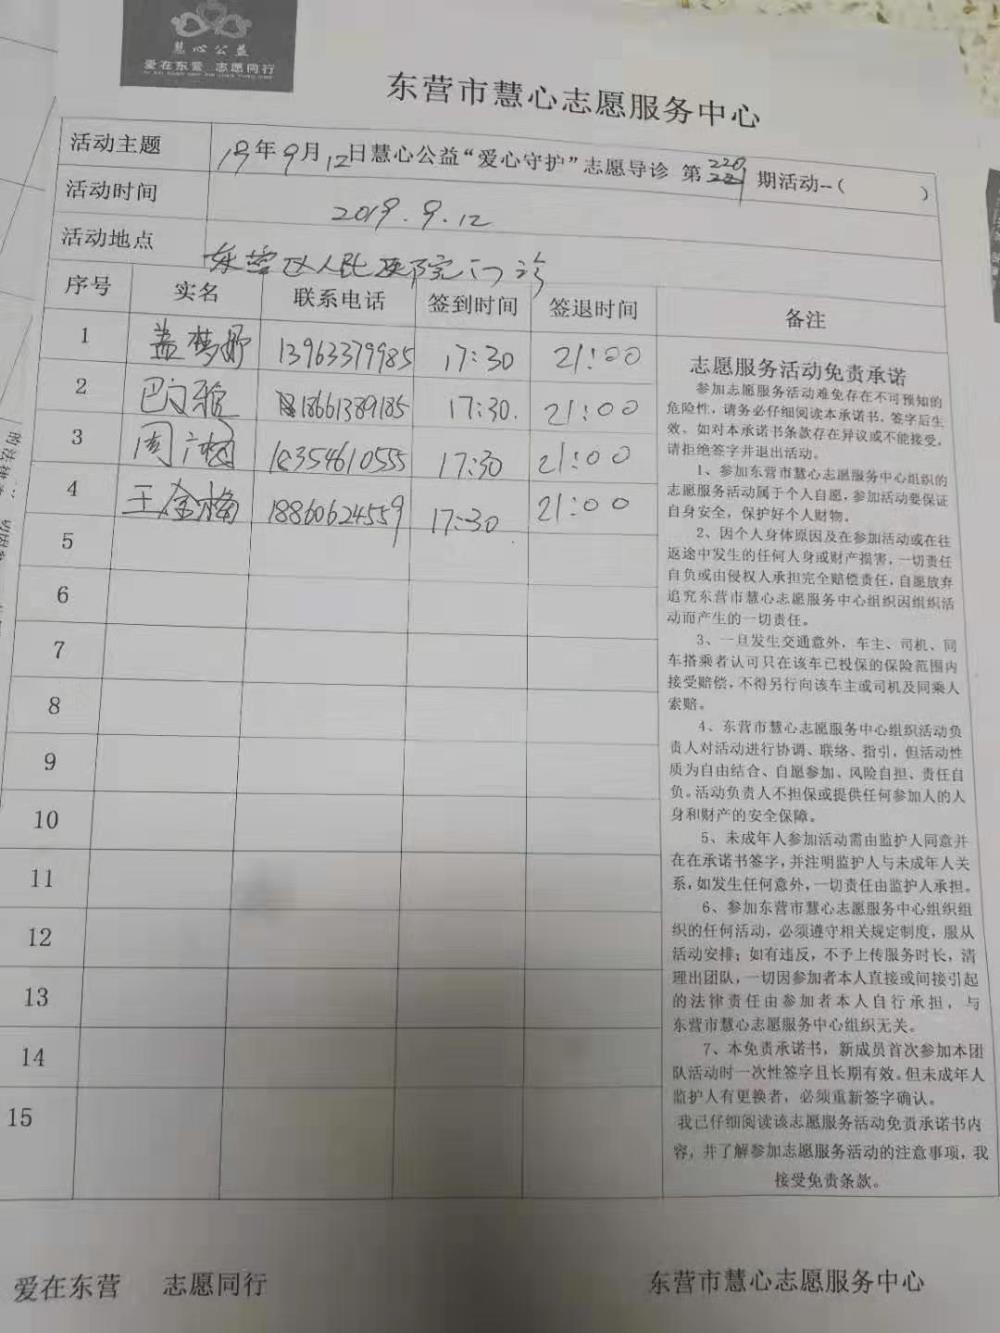 慧心公益
爱在东营 志愿同行
东营市慧心志愿服务中心
活动主题
19年9月12日慧心公益“爱心守护”志愿导诊 第220期活动--( )
活动时间
2019.9.12
活动地点
东营区人民医院门诊
序号 实名 联系电话 签到时间 签退时间 备注
1 盖梦 13963379985 17:30 21:00
2 巴文雅 18661389185 17:30. 21:00
3 周 梅 18354610555 17:30 21:00
4 王金梅 18860624559 17:30 21:00
5
6
7
8
9
10
11
12
13
14
15
志愿服务活动免责承诺
参加志愿服务活动难免存在不可预知的
危险性，请务必仔细阅读本承诺书，签字后生
效。如对本承诺书条款存在异议或不能接受，
请拒绝签字并退出活动。
1、参加东营市慧心志愿服务中心组织的
志愿服务活动属于个人自愿，参加活动要保证
自身安全，保护好个人财物。
2、因个人身体原因及在参加活动或在往
返途中发生的任何人身或财产损害，一切责任
自负或由侵权人承担完全赔偿责任，自愿放弃
追究东营市慧心志愿服务中心组织因组织活
动而产生的一切责任。
3、一旦发生交通意外，车主、司机、同
车搭乘者认可只在该车已投保的保险范围内
接受赔偿，不得另行向该车主或司机及同乘人
索赔。
4、东营市慧心志愿服务中心组织活动负
责人对活动进行协调、联络、指引，但活动性
质为自由结合、自愿参加、风险自担、责任自
负。活动负责人不担保或提供任何参加人的人
身和财产的安全保障。
5、未成年人参加活动需由监护人同意并
在在承诺书签字，并注明监护人与未成年人关
系，如发生任何意外，一切责任由监护人承担。
6、参加东营市慧心志愿服务中心组织组
织的任何活动，必须遵守相关规定制度，服从
活动安排；如有违反，不予上传服务时长，清
理出团队，一切因参加者本人直接或间接引起
的法律责任由参加者本人自行承担，与
东营市慧心志愿服务中心组织无关。
7、本免责承诺书，新成员首次参加本团
队活动时一次性签字且长期有效。但未成年人
监护人有更换者，必须重新签字确认。
我已仔细阅读该志愿服务活动免责承诺书内
容，并了解参加志愿服务活动的注意事项，我
接受免责条款。
爱在东营 志愿同行 东营市慧心志愿服务中心